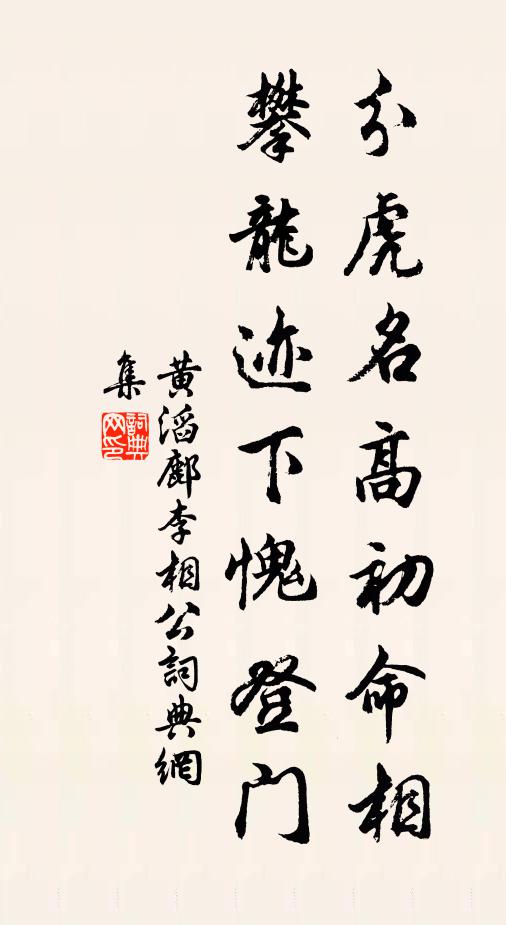 分虎名高初命相
攀龍迹下愧登門
黃滔鄜李相公詞典網
集
詞典
网印